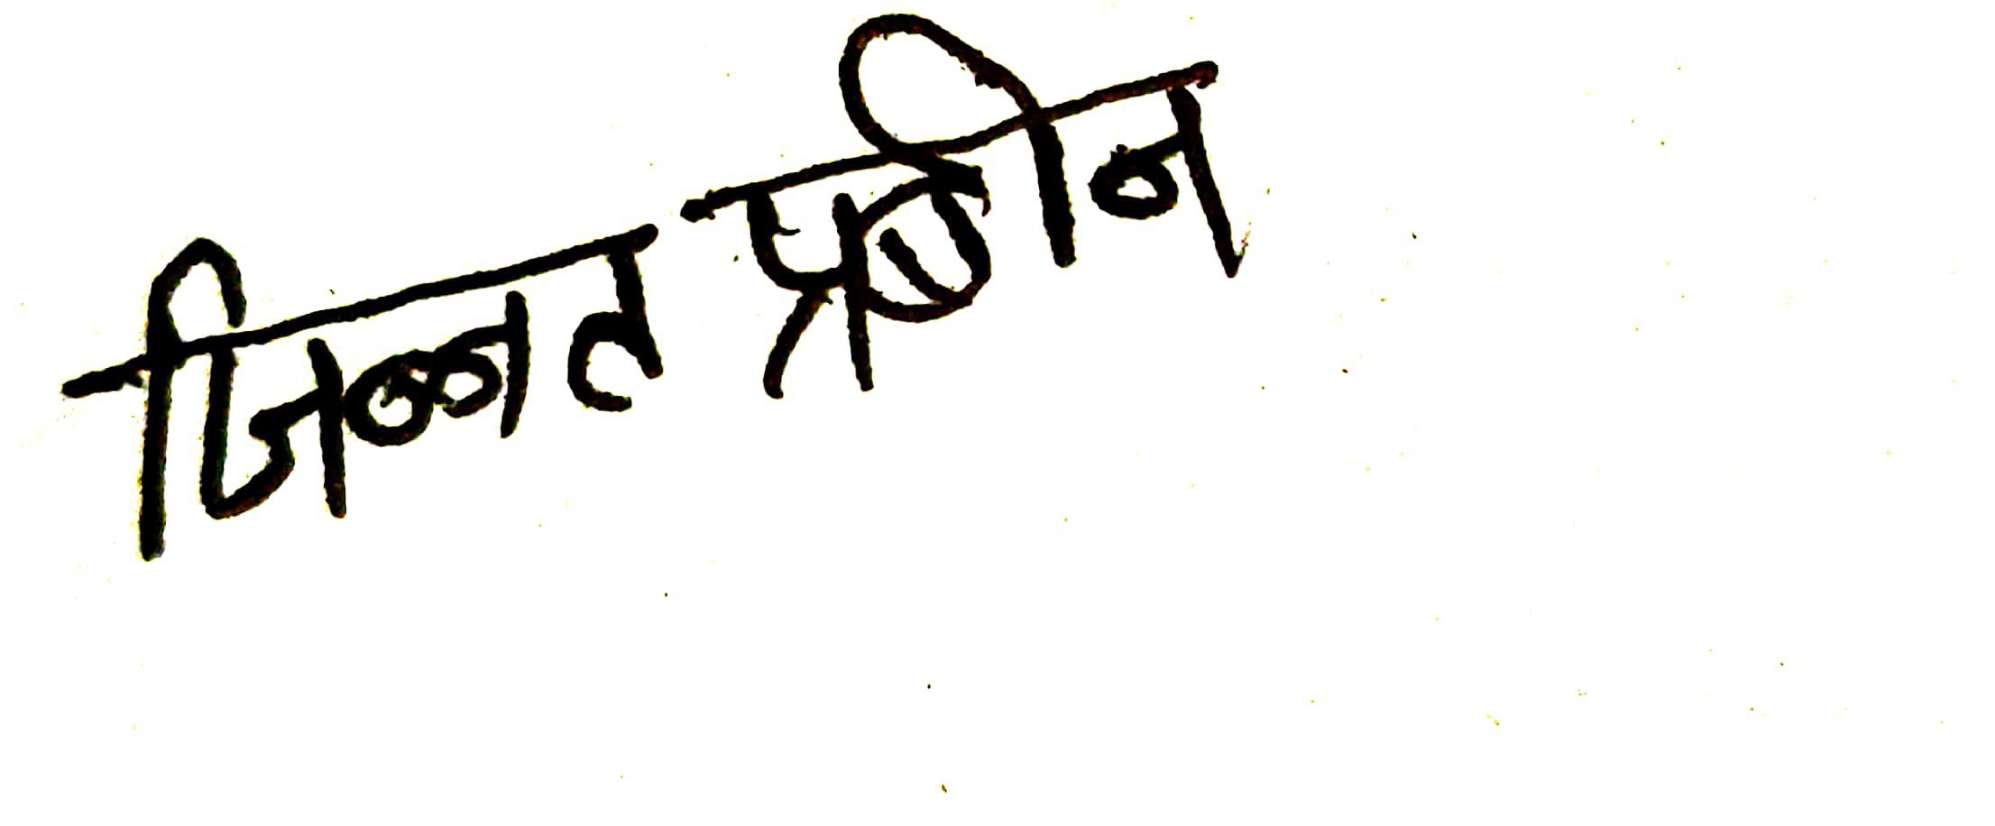 जिन्नत प्रवीन